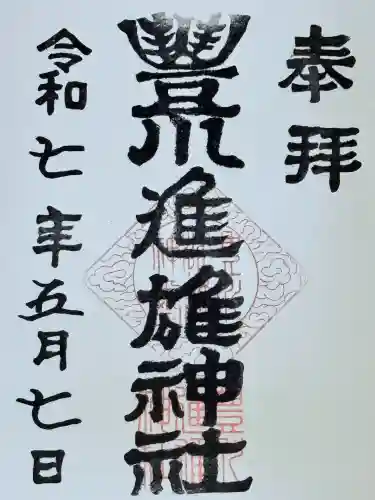 奉拝
豐川進雄神社
令和七年五月七日